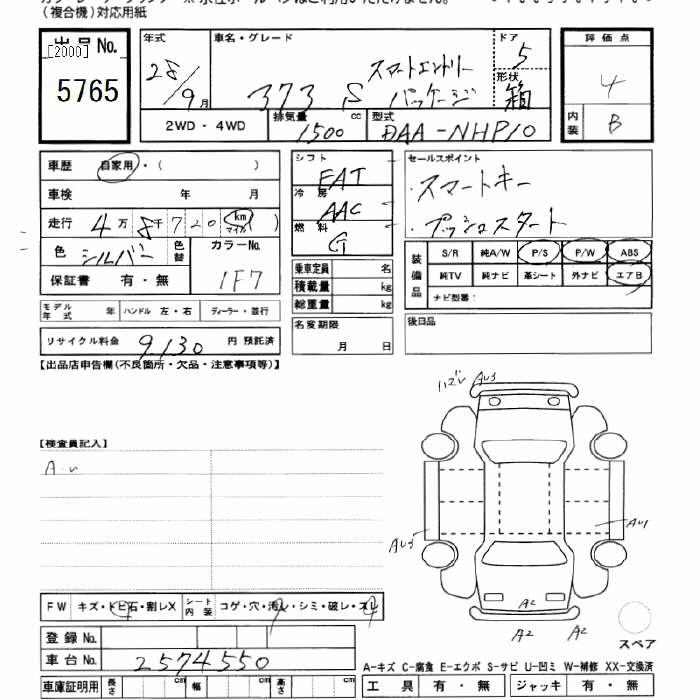 (複合機)対応用紙
出品No.
[2000]
5765
年式 車名・グレード ドア 5
28/9月 373 S スマートエントリーパッケージ 形状 箱
評価点
4
内装 B
2WD・4WD 排気量 1500 cc 型式 DAA-NHP10
車歴 自家用・( )
車検 年 月
走行 4万 8千 7 2 0 km マイル ( )
色 シルバー 色替 カラーNo. 1F7
保証書 有・無
モデル年式 年 ハンドル 左・右 ディーラー・並行
リサイクル料金 9130 円 預託済
シフト FAT
冷房 AAC
燃料 G
乗車定員 名
積載量 kg
総重量 kg
名変期限
月 日
セールスポイント
・スマートキー
・プッシュスタート
装備品 S/R 純A/W P/S P/W ABS
純TV 純ナビ 革シート 外ナビ エアB
ナビ型番:
後日品
【出品店申告欄(不良箇所・欠品・注意事項等)】
AU3
【検査員記入】
A.U
AU3
AU1
A2
A2 A2
スペア
FW キズ・トビ石・割レX シート内装 コゲ・穴・汚レ・シミ・破レ・スレ
登録No.
車台No. 2574550
車庫証明用 長さ cm 幅 cm 高さ cm
A-キズ C-腐食 E-エクボ S-サビ U-凹ミ W-補修 XX-交換済
工具 有・無 ジャッキ 有・無